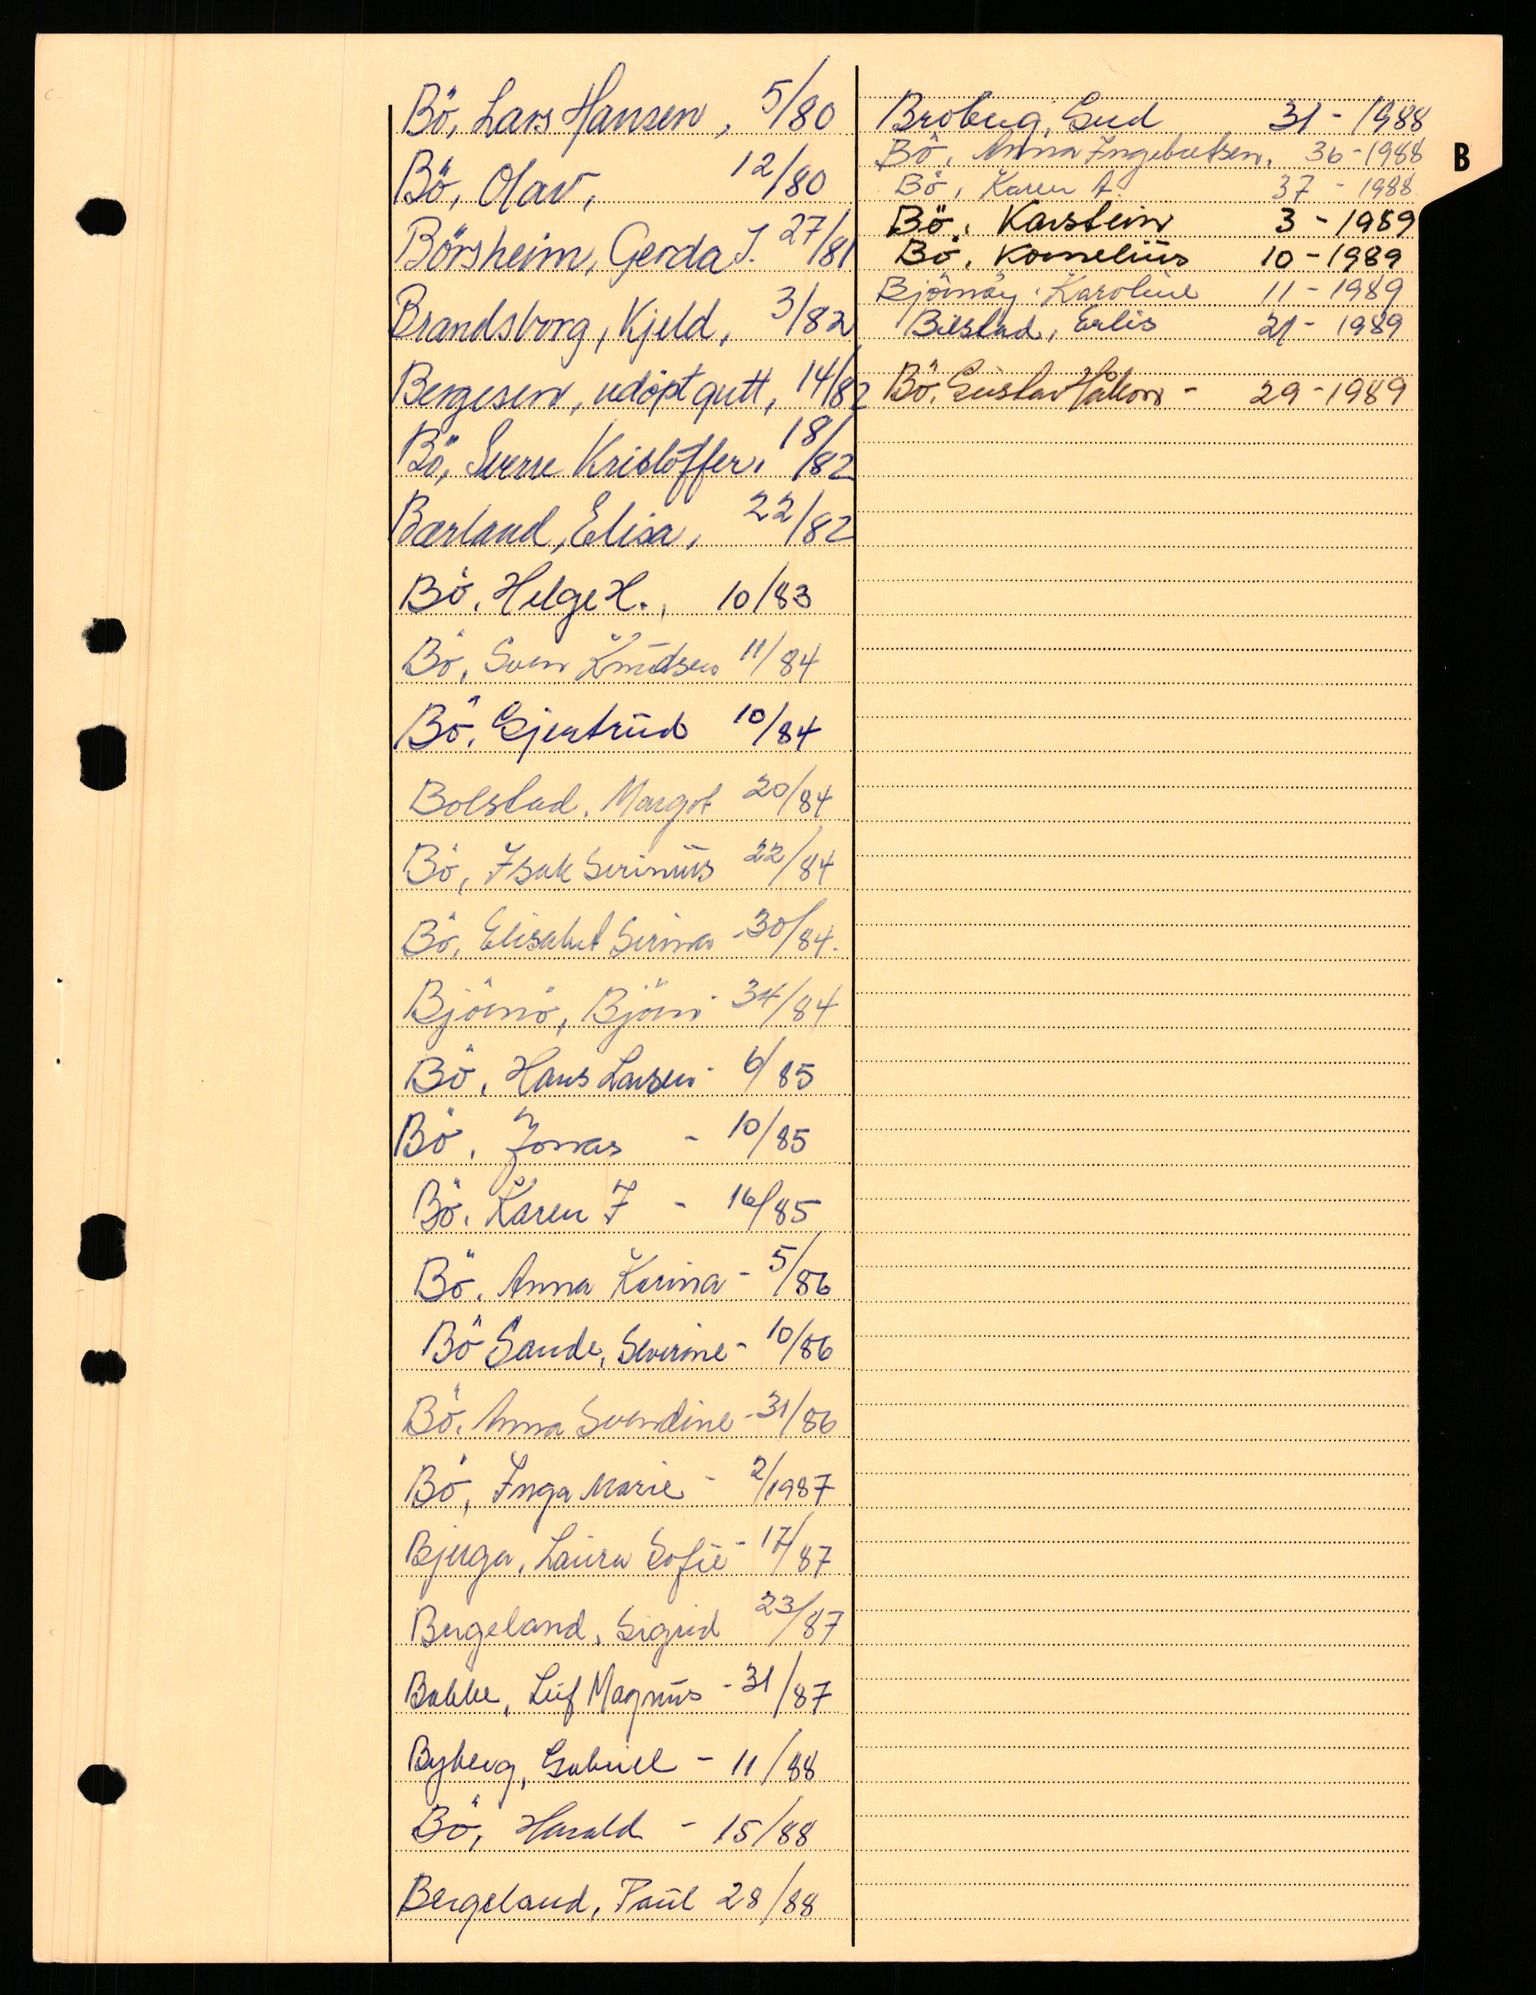 Bö, Lars Hansen, 5/80
Bö, Olav, 12/80
Börsheim, Gerda J. 27/81
Brandsborg, Kjeld, 3/82
Bergesen, udöpt gutt, 14/82
Bö, Sverre Kristoffer, 18/82
Bærland, Elisa, 22/82
Bö, Helge H., 10/83
Bö, Sven Knudsen 11/84
Bö, Gjertrud 10/84
Bolstad, Margot 20/84
Bö, Isak Serinius 22/84
Bö, Elisabet Serina - 30/84.
Björnö, Björn - 34/84
Bö, Hans Larsen - 6/85
Bö, Jonas - 10/85
Bö, Karen I - 16/85
Bö, Anna Karina - 5/86
Bö Sande, Severine - 10/86
Bö, Anna Svendine - 31/86
Bö, Inga Marie - 2/1987
Bjerga, Laura Sofie - 17/87
Bergeland, Sigrid 23/87
Bakke, Leif Magnus - 31/87
Byberg, Gabriel - 11/88
Bö, Harald - 15/88
Bergeland, Paul 28/88
Broberg, 31 - 1988
Bö, Anna Ingebretsen, 36 - 1988
Bö, Karen A. 37 - 1988
Bö, Karstein 3 - 1989
Bö, Kornelius 10 - 1989
Björnöy, Karoline 11 - 1989
Bilstad, 21 - 1989
Bö, Gustav Håkon - 29 - 1989
B